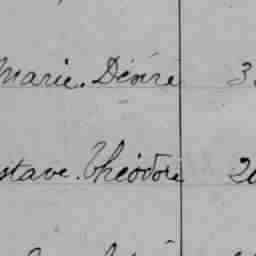 Marie. Désiré 3
stave. Théodore 20